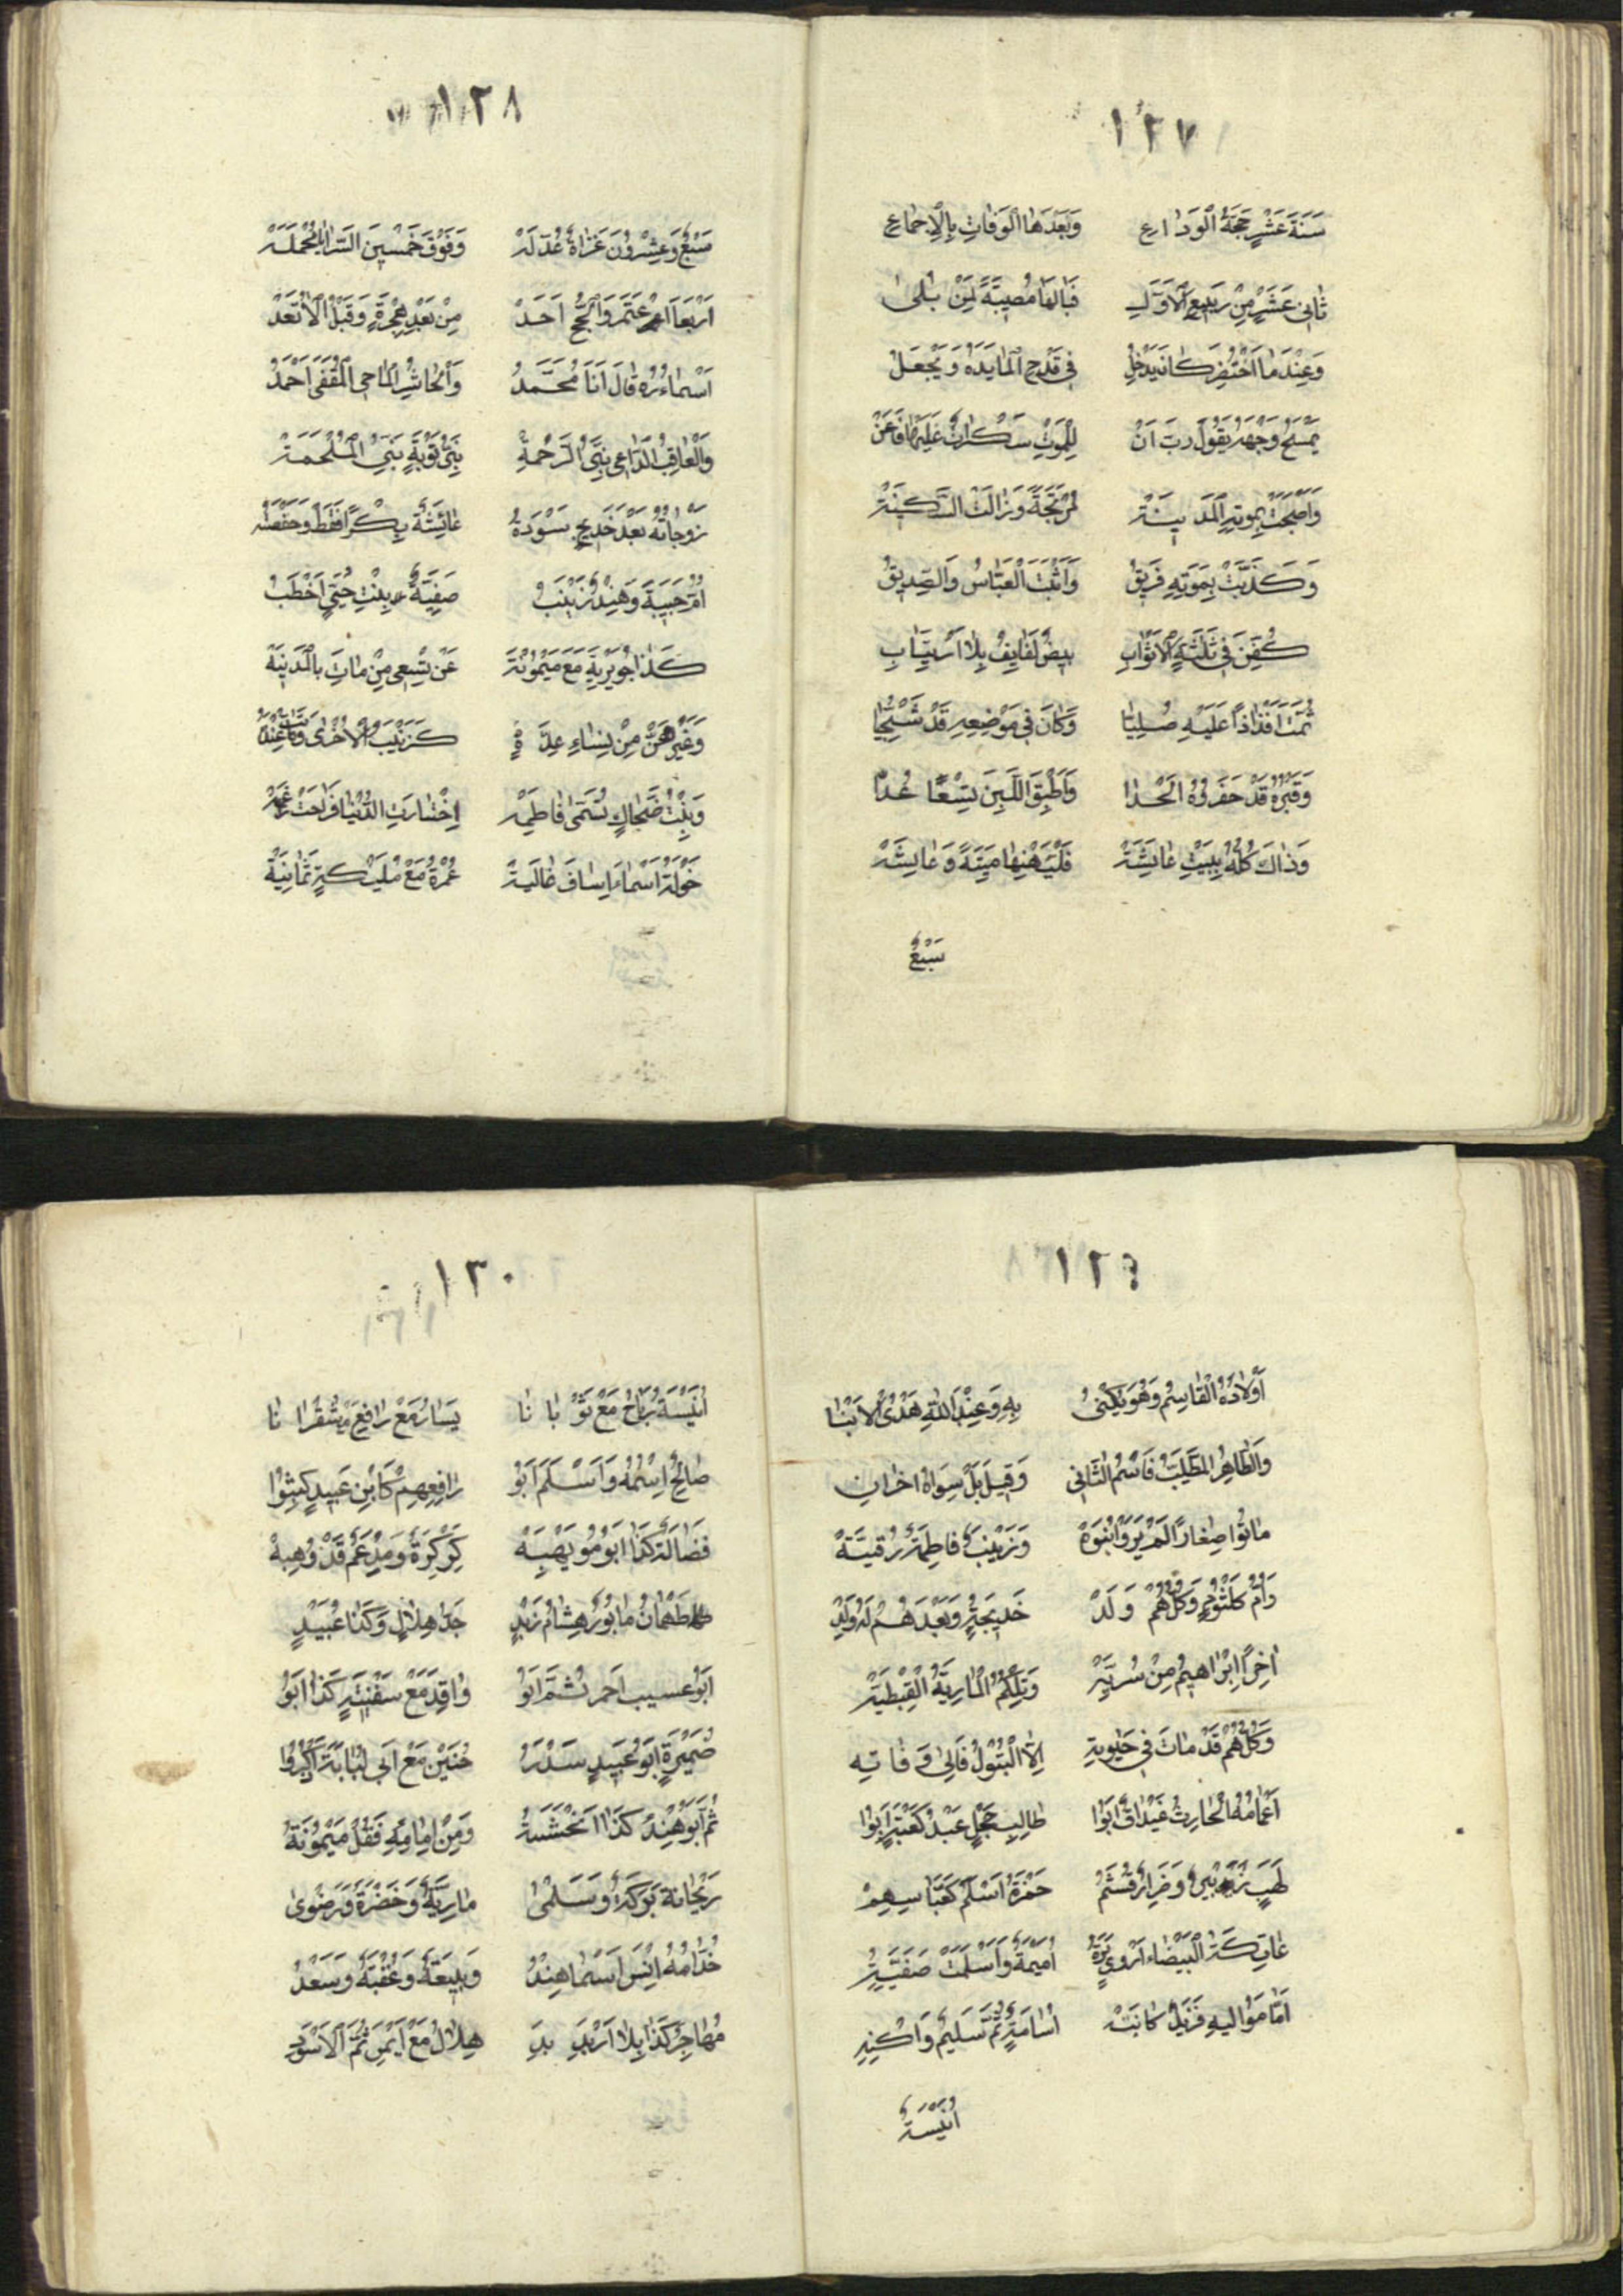 ١٢٧
سَنَةَ عَشْرٍ حَجَّةُ الْوَدَاعِ وَبَعْدَهَا الْوَفَاتِ بِالْاِجْمَاعِ
ثَانِى عَشَرٍ مِنْ رَبِيعِ الْاَوَّلِ فَيَالَهَا مُصِيبَةً لِمَنْ بُلِىَ
وَعِنْدَمَا احْتُضِرَ كَانَ يَدْخِلُ فِى قَدَحِ الْمَا يَدَهُ وَيَجْعَلُ
يَمْسَحُ وَجْهَهُ يَقُولُ رَبِّ اَنْ لِلْمَوْتِ سَكَرَاتٌ عَلَيْهَا فَاَعِنْ
وَاَصْبَحَتْ بِمَوْتِهِ الْمَدِينَةْ مُرْتَجَّةً وَزَالَتْ السَّكِينَةْ
وَكَذَّبَتْ بِمَوْتِهِ فَرِيقُ وَاَثْبَتَ الْعَبَّاسُ وَالصِّدِيقُ
كُفِّنَ فِى ثَلٰثَةِ الْاَثْوَابِ بِيضٌ لَفَايِفٌ بِلَا ارْتِيَابِ
ثُمَّتَ اَفْذَاذًا عَلَيْهِ صُلِيَا وَكَانَ فِى مَوْضِعِهِ قَدْ سُجِّيَا
وَقَبْرُهُ قَدْ حَفَرُوهُ اَلْحَدَا وَاُطْبِقَ اللَّبِنَ تِسْعًا عُدَّا
وَذَاكَ كُلُّهُ بِبَيْتِ عَايِشَةْ فَلْيَهْنِهَا مَيِّتَةً وَعَايِشَةْ
سَبْعٌ
١٢٨
سَبْعٌ وَعِشْرُونَ غَزَاةً عُدَّ لَهْ وَفَوْقَ خَمْسِينَ السَّرَايَا مُجْمَلَةْ
اَرْبَعًا اعْتَمَرَ وَالْحَجُّ اَحَدْ مِنْ بَعْدِ هِجْرَةٍ وَقَبْلُ لَا تُعَدْ
اَسْمَاءُهُ قَالَ اَنَا مُحَمَّدُ وَالْحَاشِرُ الْمَاحِى الْمُقَفَّى اَحْمَدُ
وَالْعَاقِبُ الدَّاعِى نَبِىُّ الرَّحْمَةْ نَبِىُّ تَوْبَةٍ نَبِىُّ الْمَلْحَمَةْ
زَوْجَاتُهُ بَعْدَ خَدِيجٍ سَوْدَةُ عَائِشَةٌ بِكْرًا فَقَطْ وَحَفْصَةُ
اُمُّ حَبِيبَةَ وَهِنْدٌ زَيْنَبُ صَفِيَّةٌ بِنْتِ حُيَىٍّ اَخْطَبُ
كَذَا جُوَيْرِيَةَ مَعَ مَيْمُونَةْ عَنْ تِسْعِى مِنْ مَاتَ بِالْمَدِينَةْ
وَغَيْرُهُنَّ مِنْ نِسَاءٍ عِدَّةٍ كَزَيْنَبَ الْاُخْرَى وَمَاتَتْ عِنْدَهُ
وَبِنْتُ ضَحَّاكٍ تُسَمَّى فَاطِمَةْ اِخْتَارَتِ الدُّنْيَا فَرَاحَتْ رَاغِمَةْ
خَوْلَةُ اَسْمَاءَ اِسَافَ غَالِيَةْ عَمْرَةُ مَعْ مُلَيْكَةٍ ثَمَانِيَةْ
١٢٩
اَوْلَادُهُ الْقَاسِمُ وَهُوَ يُكْنَى بِهِ وَعِنْدَ اللّٰهِ هَذِى الْاَبْنَا
وَالطَّاهِرُ الْمُطَيَّبُ فَاسْمُ الثَّانِى وَقِيلَ بَلْ سِوَاهُ اخَرَانِ
مَاتُوا صِغَارًا لَمْ يَرَوْا نُبُوَّةْ وَزَيْنَبٌ فَاطِمَةُ رُقَيَّةْ
وَاُمُّ كُلْثُومٍ وَكُلُّهُمْ وَلَدْ خَدِيجَةٍ وَبَعْدَهُمْ لَهُ وُلِدْ
اٰخِرًا اِبْرَاهِيمُ مِنْ سُرِّيَّةْ وَتِلْكُمُ الْمَارِيَةُ الْقِبْطِيَّةْ
وَكُلُّهُمْ قَدْ مَاتَ فِى حَيٰوتِهِ اِلَّا الْبَتُولُ فَاِلَى وَفَاتِهِ
اَعْمَامُهُ الْحَارِثُ غَيْدَاقٌ اَبُوا طَالِبِ حَجْلٍ عَبْدُ كَعْبَةٍ اَبُوا
لَهَبٍ زُبَيْرٌ وَضِرَارٌ قُثَمُ حَمْزَةُ اَسْلَمَ كَعَبَّاسِهِمْ
عَاتِكَةُ الْبَيْضَاءُ اَرْوَى بَرَّةُ اُمَيْمَةٌ وَاَسْلَمَتْ صَفِيَّةُ
اَمَّا مَوَالِيهِ فَزَيْدٌ كَانَتْ اُسَامَةٍ ثُمَّ سَلِيمٌ وَاَكْنِهِ
اُنَيْسَةٌ
١٣٠
اُنَيْسَةٌ رَبَاحُ مَعْ ثَوْبَانَا يَسَارُ مَعْ رَافِعَ مَعْ شُقْرَانَا
صَالِحُ اِسْمُهُ وَاَسْلَمَ اَبُو رَافِعِهِمْ كَابْنِ عُبَيْدٍ كَتَبُوا
فَضَالَةٌ كَذَا اَبُو مُوَيْهِبَةْ كَرْكَرَةٌ وَمِدْعَمٌ قَدْ وُهِبَهْ
طَهْمَانُ مَابُورٌ هِشَامُ زَيْدٍ جَدَّا هِلَالٍ وَكَذَا عُبَيْدٍ
اَبُو عَسِيب اَحْمَر ثُمَّ اَبُو وَاقِدَ مَعْ سَفِينَةٍ كَذَا اَبُو
ضُمَيْرَةٍ اَبُو عُبَيْدٍ سَنْدَرُ حُنَيْنٌ مَعْ اَبِى لُبَابَةَ اذْكُرُوا
ثُمَّ اَبُو هِنْدٌ كَذَا اَنْجَشَةُ وَمِنْ اِمَائِهِ فَقُلْ مَيْمُونَةُ
رَيْحَانَة بَرَكَةٌ وَسَلْمَى مَارِيَّةٌ وَخَضْرَةٌ وَرَضْوَى
خُدَّامُهُ اَنَسٌ اَسْمَا هِنْدُ وَرَبِيعَةٌ وَعُقْبَةٌ وَسَعْدُ
مُهَاجِرٌ كَذَا بِلَا اَرْبَدِ هِلَالُ مَعْ اَيْمَنَ ثُمَّ الْاَسْوَدِ